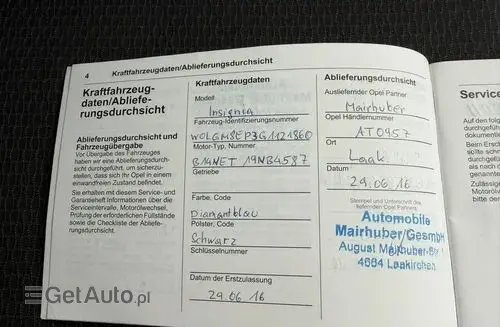 4 Kraftfahrzeugdaten/Ablieferungsdurchsicht
Kraftfahrzeug-
daten/Abliefe-
rungsdurchsicht
Ablieferungsdurchsicht und
Fahrzeugübergabe
Vor Übergabe des Fahrzeuges
haben wir eine Ablieferungsdurch-
sicht durchgeführt, um sicherzu-
stellen, dass sich Ihr Opel in einem
einwandfreien Zustand befindet.
Sie erhalten mit diesem Service- und
Garantieheft Informationen über die
Serviceintervalle, Motorölwechsel,
Prüfung der erforderlichen Füllstände
sowie die Checkliste der Abliefe-
rungsdurchsicht.
Kraftfahrzeugdaten
Modell
Insignia
Fahrzeug-Identifizierungsnummer
W0LGM8EP3G1121860
Motor-Typ, Nummer
B14NET 19NB4587
Getriebe
Farbe, Code
Diamantblau
Polster, Code
Schwarz
Schlüsselnummer
Datum der Erstzulassung
29.06 16
Ablieferungsdurchsicht
Ausliefernder Opel Partner
Mairhuber
Opel Händlernummer
AT0957
Ort
Laak.
Datum
29.06.16
Stempel und Unterschrift des
liefernden Opel Partners
Automobile
Mairhuber/GesmbH
August Mairhuber-Str.
4664 Laakirchen
Service
Auf den
durchgeführt
Beim
sollte
durchgeführt
Zulässige
bitte den
GetAuto.pl